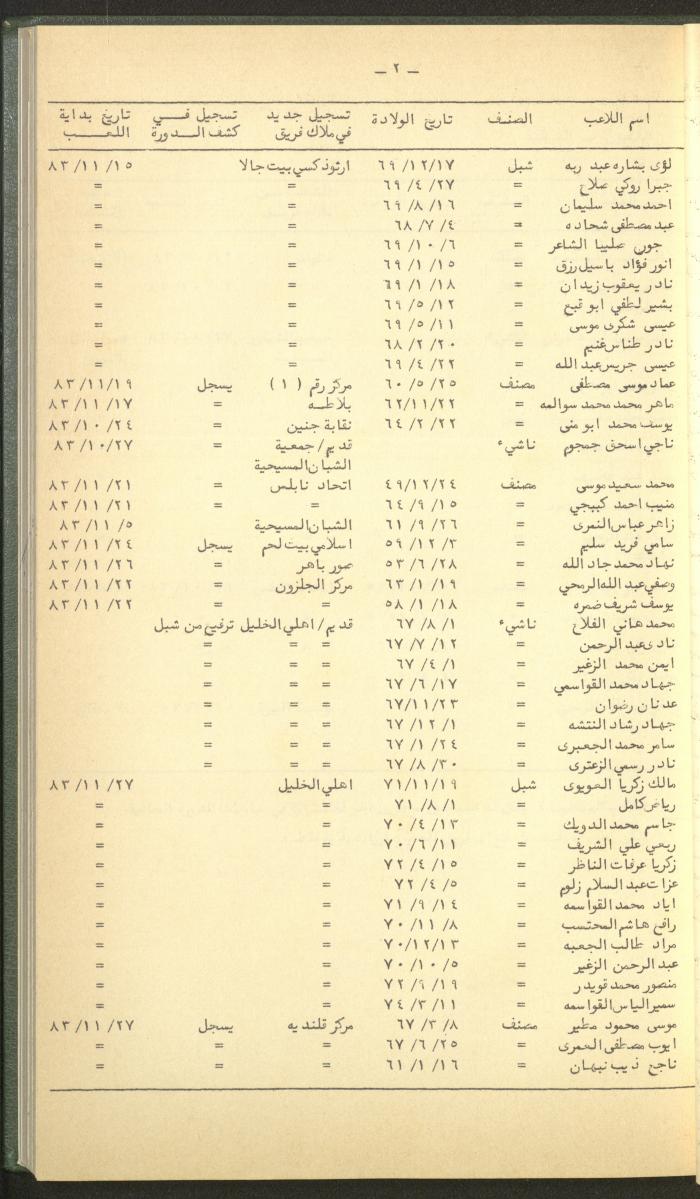 — ٢ —
اسم اللاعب الصنف تاريخ الولادة تسجيل جديد في ملاك فريق تسجيل في كشف الدورة تاريخ بداية اللعب
لؤى بشاره عبد ربه شبل ٦٩/١٢/١٧ ارثوذكسي بيت جالا ٨٣/١١/١٥
جبرا روكي صلاح = ٦٩/٤/٢٧ = =
احمد محمد سليمان = ٦٩/٨/١٦ = =
عبد مصطفى شحاده = ٦٨/٧/٤ = =
جون صليبا الشاعر = ٦٩/١٠/٦ = =
انور فؤاد باسيل رزق = ٦٩/١/١٥ = =
نادر يعقوب زيدان = ٦٩/١/١٨ = =
بشير لطفي ابو قبع = ٦٩/٥/١٢ = =
عيسى شكرى موسى = ٦٩/٥/١١ = =
نادر طناس غنيم = ٦٨/٢/٢٠ = =
عيسى جريس عبد الله = ٦٩/٤/٢٢ = =
عماد موسى مصطفى مصنف ٦٠/٥/٢٥ مركز رقم (١) يسجل ٨٣/١١/١٩
ماهر محمد محمد سوالمه = ٦٢/١١/٢٢ بلاطه = ٨٣/١١/١٧
يوسف محمد ابو منى = ٦٤/٢/٢٢ نقابة جنين = ٨٣/١٠/٢٤
ناجي اسحق جمجوم ناشيء قديم/جمعية = ٨٣/١٠/٢٧
الشبان المسيحية
محمد سعيد موسى مصنف ٤٩/١٢/٢٤ اتحاد نابلس = ٨٣/١١/٢١
منيب احمد كبيجي = ٦٤/٩/١٥ = = ٨٣/١١/٢١
زاهر عباس النمرى = ٦١/٩/٢٦ الشبان المسيحية ٨٣/١١/٥
سامي فريد سليم = ٥٩/١٢/٣ اسلامي بيت لحم يسجل ٨٣/١١/٢٤
نهاد محمد جاد الله = ٥٣/٦/٢٨ صور باهر = ٨٣/١١/٢٦
وصفي عبد الله الرمحي = ٦٣/١/١٩ مركز الجلزون = ٨٣/١١/٢٢
يوسف شريف ضمره = ٥٨/١/١٨ = = ٨٣/١١/٢٢
محمد هاني الفلاح ناشيء ٦٧/٨/١ قديم/اهلي الخليل ترفيع من شبل
نادى عبد الرحمن = ٦٧/٧/١٢ = = =
ايمن محمد الزغير = ٦٧/٤/١ = = =
جهاد محمد القواسمي = ٦٧/٦/١٧ = = =
عدنان رضوان = ٦٧/١١/٢٣ = = =
جهاد رشاد النتشه = ٦٧/١٢/١ = = =
سامر محمد الجعبرى = ٦٧/١/٢٤ = = =
نادر رسمي الزعترى = ٦٧/٨/٣٠ = = =
مالك زكريا العويوى شبل ٧١/١١/١٩ اهلي الخليل ٨٣/١١/٢٧
رياض كامل = ٧١/٨/١ = =
جاسم محمد الدويك = ٧٠/٤/١٣ = =
ربعي علي الشريف = ٧٠/٦/١١ = =
زكريا عرفات الناظر = ٧٢/٤/١٥ = =
عزات عبد السلام زلوم = ٧٢/٤/٥ = =
اياد محمد القواسمه = ٧١/٩/١٤ = =
رافع هاشم المحتسب = ٧٠/١١/٨ = =
مراد طالب الجعبه = ٧٠/١٢/١٣ = =
عبد الرحمن الزغير = ٧٠/١٠/٥ = =
منصور محمد قويدر = ٧٢/٩/١٩ = =
سمير الياس القواسمه = ٧٤/٣/١١ = =
موسى محمود مطير مصنف ٦٧/٣/٨ مركز قلنديه يسجل ٨٣/١١/٢٧
ايوب مصطفى العمرى = ٦٧/٦/٢٥ = = =
ناجح ذيب نبهان = ٦١/١/١٦ = = =